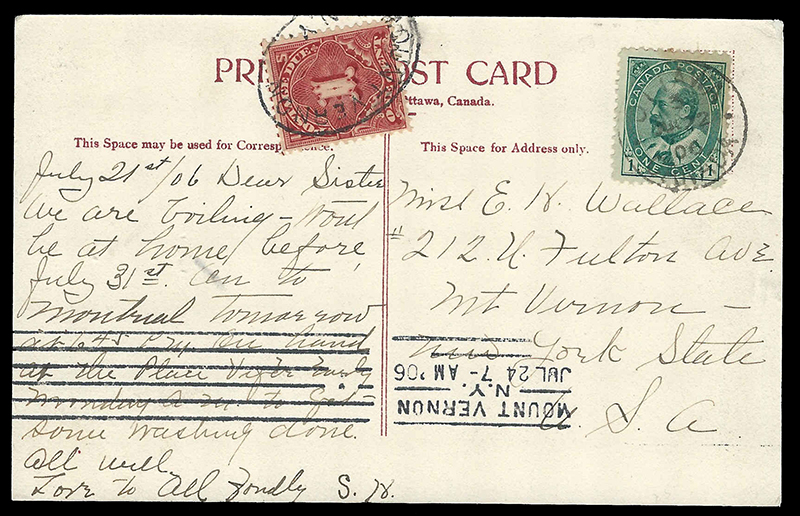 PRI OST CARD
ttawa, Canada.
This Space may be used for Corresp ence.
This Space for Address only.
POSTAGE DUE
1
CANADA POSTAGE
ONE CENT
July 21st/06 Dear Sister
We are boiling - Wont
be at home before
July 31st. On to
Montreal tomorrow
at 6 45 P
at the Place Viger Early
Monday A.M. to get
some washing done.
All well
Love to All Fondly S. H.
Miss E. H. Wallace
# 212 N. Fulton Ave.
Mt Vernon -
New York State
U. S. A.
MOUNT VERNON
N.Y.
JUL 24 7-AM '06